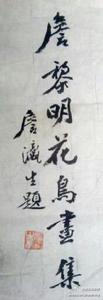 詹黎明花鳥畫集
詹瀛生題